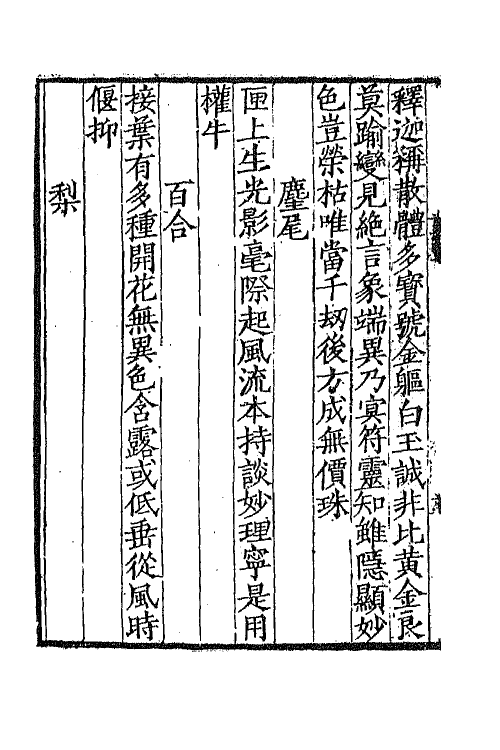 釋迦稱散體多寶號金軀白玉誠非比黃金良
莫踰變見絶言象端異乃寞符靈知雖隱顯妙
色豈榮枯唯當千刼後方成無價珠
麈尾
匣上生光影毫際起風流本持談妙理寧是用
權牛
百合
接葉有多種開花無異色含露或低垂從風時
偃抑
梨